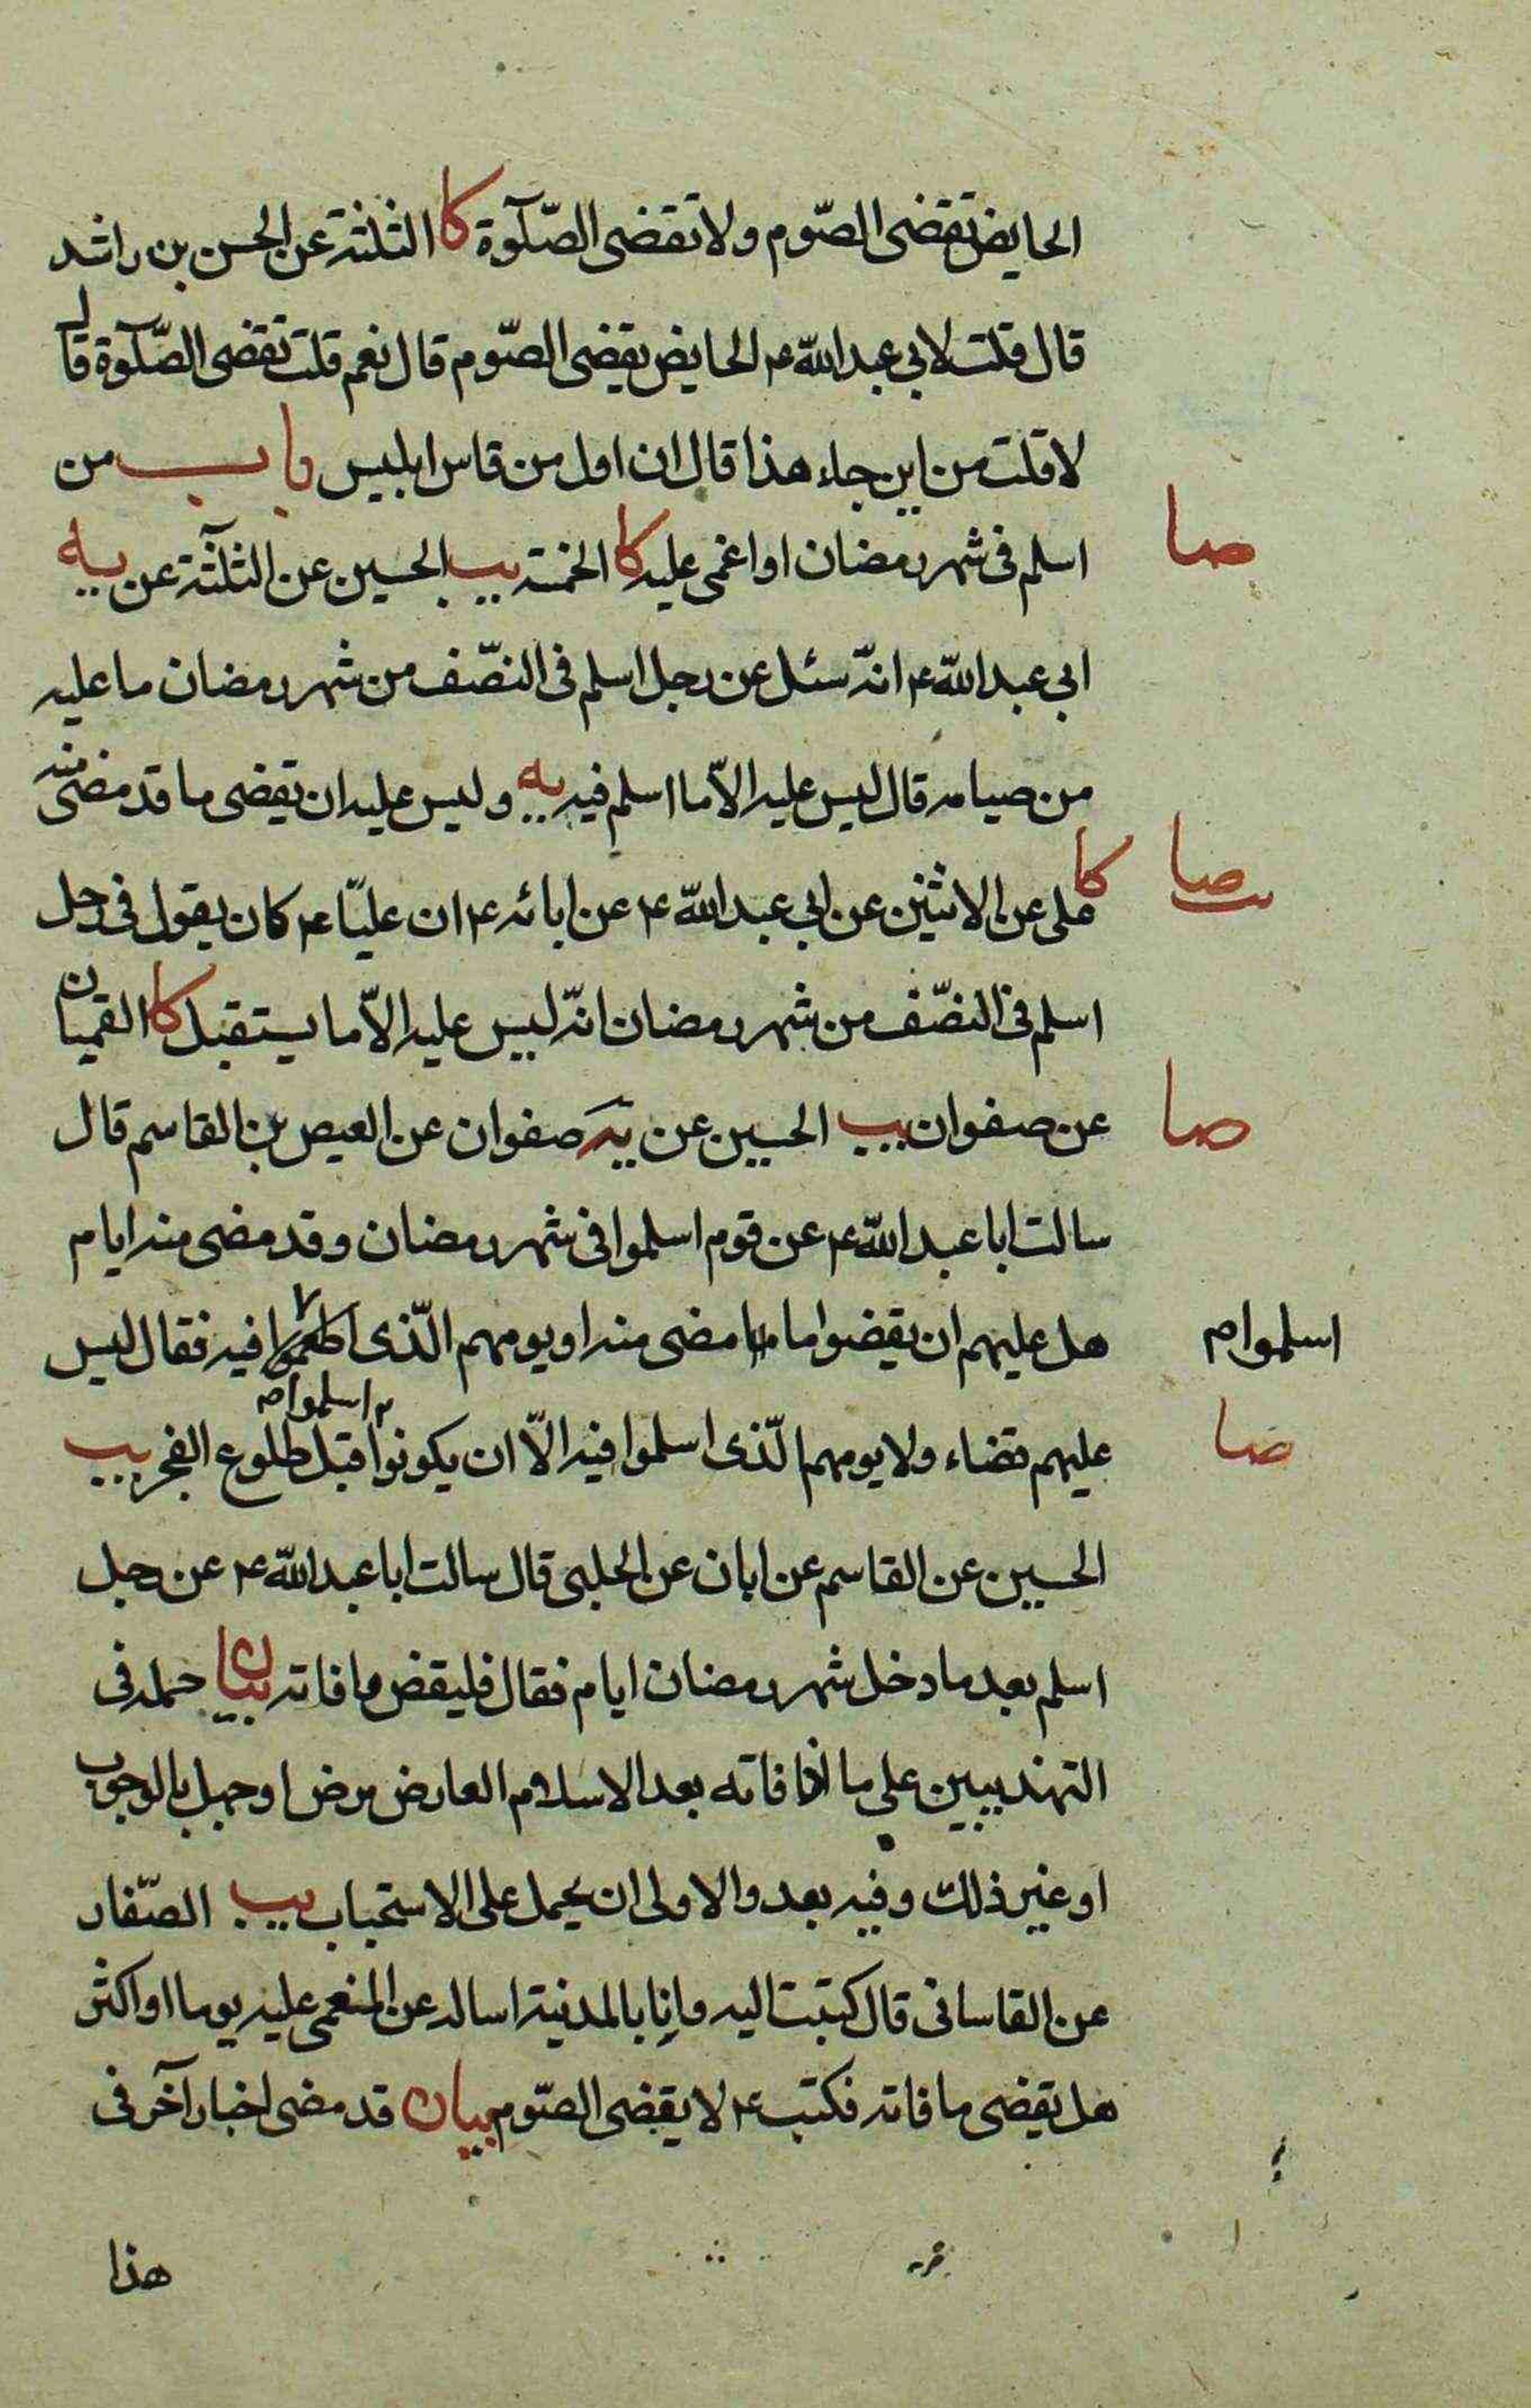 الحايض تقضى الصّوم ولا تقضى الصّلوٓة كا الثلثة عن الحسن بن راشد
قال قلت لابى عبد اللّه ع الحايض يقضى الصّوم قال نعم قلت تقضى الصّلوٓة قال
لا قلت من اين جاء هذا قال ان اول من قاس ابليس باب من
صا
اسلم فى شهر رمضان او اغمى عليه كا الخمسة يب الحسين عن الثلثٓة عن يه
ابى عبد اللّه ع انّه سئل عن رجل اسلم فى النصّف من شهر رمضان ما عليه
من صيامه قال ليس عليه الاّ ما اسلم فيه يه وليس عليه ان يقضى ما قد مضى منه
صا
كا على عن الاثنين عن ابى عبد اللّه ع عن ابائه ع ان عليّا ع كان يقول فى رجل
اسلم فى النصّف من شهر رمضان انّه ليس عليه الاّ ما يستقبل كا القميان
صا
عن صفوان يب الحسين عن يه صفوان عن العيص بن القاسم قال
سالت ابا عبد اللّه ع عن قوم اسلموا فى شهر رمضان وقد مضى منه ايام
اسلموا م
هل عليهم ان يقضوا ما مضى منه او يومهم الّذى فيه فقال ليس
اسلموا م
صا
عليهم قضاء ولا يومهم الّذى اسلموا فيه الاّ ان يكونوا قبل طلوع الفجر يب
الحسين عن القاسم عن ابان عن الحلبى قال سالت ابا عبد اللّه ع عن رجل
اسلم بعد ما دخل شهر رمضان ايام فقال فليقض ما فاته بيان حمله فى
التهذيبين على ما اذا فاته بعد الاسلام العارض مرض او جهل بالوجوب
او غير ذلك وفيه بعد والاولى ان يحمل على الاستحباب يب الصّفار
عن القاسانى قال كتبت اليه وانا بالمدنية اساله عن المغمى عليه يوما او اكثر
هل يقضى ما فاته فكتب ع لا يقضى الصّوم بيان قد مضى اخبار آخر فى
هذا